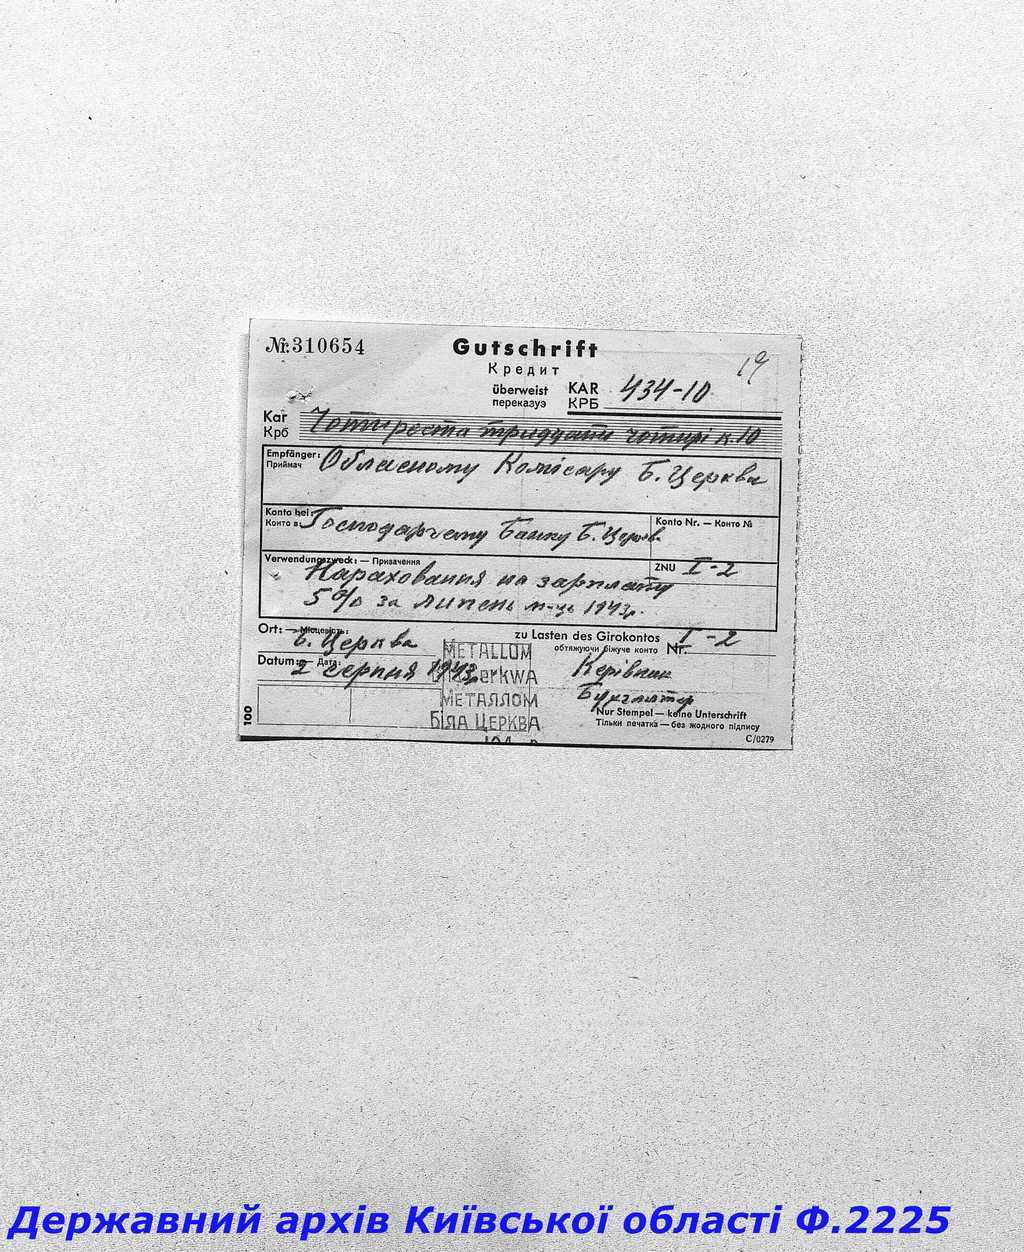 №310654
Gutschrift
Кредит
19
überweist KAR 434-10
переказуэ КРБ
Kar Крб Чотириста тридцати чотирі к. 10
Empfänger: Приймач Обласному Комісару Б. Церква
Konto bei: Конто в: Господарчему Банку Б. Церкв
Konto Nr. — Конто №
Verwendungszweck: — Призначення
ZNU I-2
Нараховання на зарплату
5% за липень м-ць 1943р.
Ort: — Місцевість: Б. Церква
zu Lasten des Girokontos
обтяжуючи біжуче конто Nr. I-2
Datum: — Дата: 2 серпня 1943р
METALLUM
Керівник
МЕТАЛЛОМ
БІЛА ЦЕРКВА
Бухгалтер
Nur Stempel — keine Unterschrift
Тільки печатка — без жодного підпису
100
C/0279
Державний архів Київської області Ф.2225